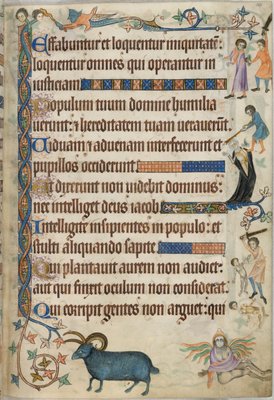 Effabuntur et loquentur iniquitatem:
loquentur omnes qui operantur in
iusticiam
Populum tuum domine humilia
uerunt: et hereditatem tuam uexauerunt.
Uiduam et aduenam interfecerunt et
pupillos occiderunt
Et dixerunt non uidebit dominus:
nec intelliget deus iacob
Intelligite insipientes in populo: et
stulti aliquando sapite
Qui plantauit aurem non audiet:
aut qui finxit oculum non considerat.
Qui corripit gentes non arguet: qui